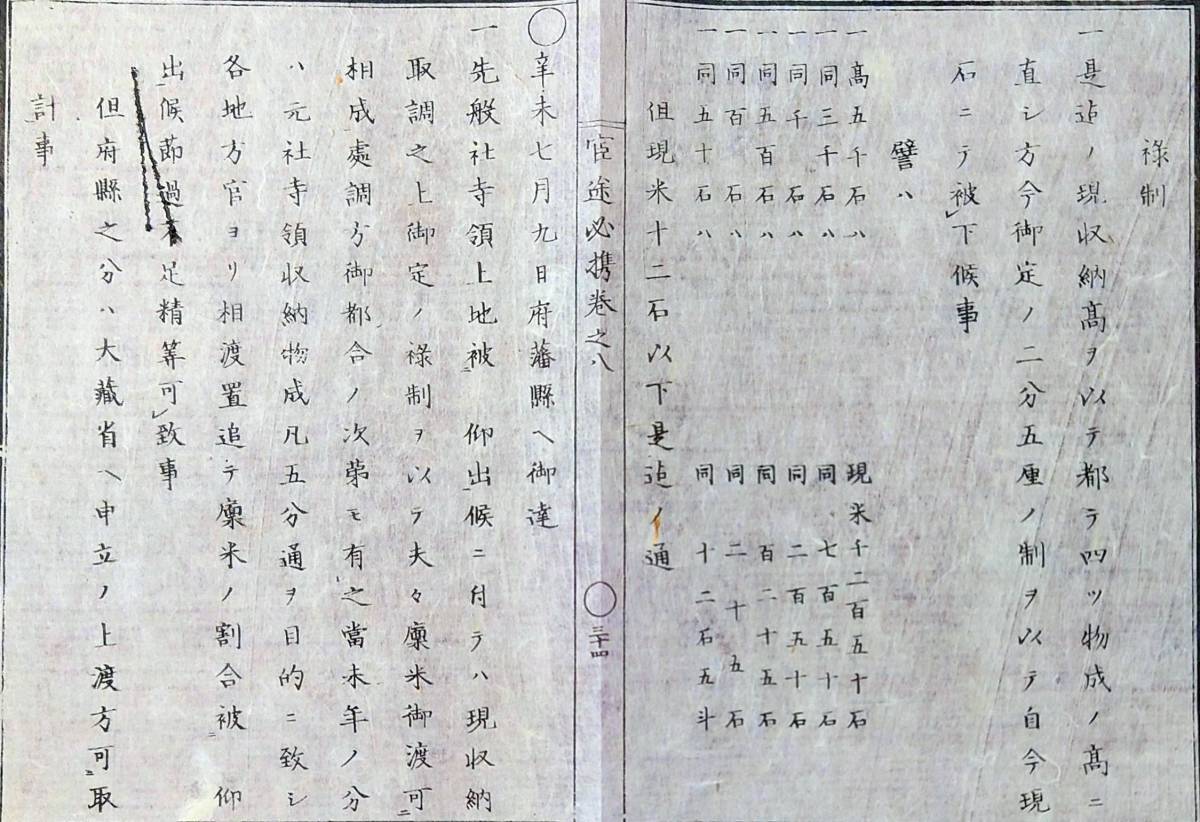 祿制
一是迠ノ現収納髙ヲ以テ都テ四ツ物成ノ髙ニ
直シ方今御定ノ二分五厘ノ制ヲ以テ自今現
石ニテ被下候事
譬ハ
一髙五千石ハ 現米千二百五十石
一同三千石ハ 同七百五十石
一同千石ハ 同二百五十石
一同五百石ハ 同百二十五石
一同百石ハ 同二十五石
一同五十石ハ 同十二石五斗
但現米十二石以下是迠ノ通
官途必携巻之八 三十四
○辛未七月九日府藩縣ヘ御達
一先般社寺領上地被 仰出候ニ付テハ現収納
取調之上御定ノ祿制ヲ以テ夫々廩米御渡可
相成處調方御都合ノ次第モ有之當未年ノ分
ハ元社寺領収納物成凡五分通ヲ目的ニ致シ
各地方官ヨリ相渡置追テ廩米ノ割合被 仰
出候節過不足精筭可致事
但府縣之分ハ大藏省ヘ申立ノ上渡方可取
計事